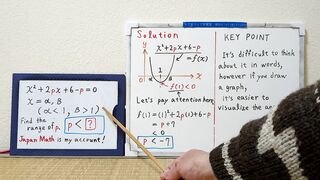 x²+2px+6-p=0
x=α, β
(α<1, β>1)
Find the
range of p.
p < ?
Japan Math is my account!
Solution
y
x²+2px+6-p
=f(x)
1
α
β
x
0
f(1)<0
Let's pay attention here
f(1)=(1)²+2p(1)+6-p
=p+7
<0
p<-7
KEY POINT
It's difficult to think
about it in words,
however if you draw
a graph,
it's easier to
visualize the